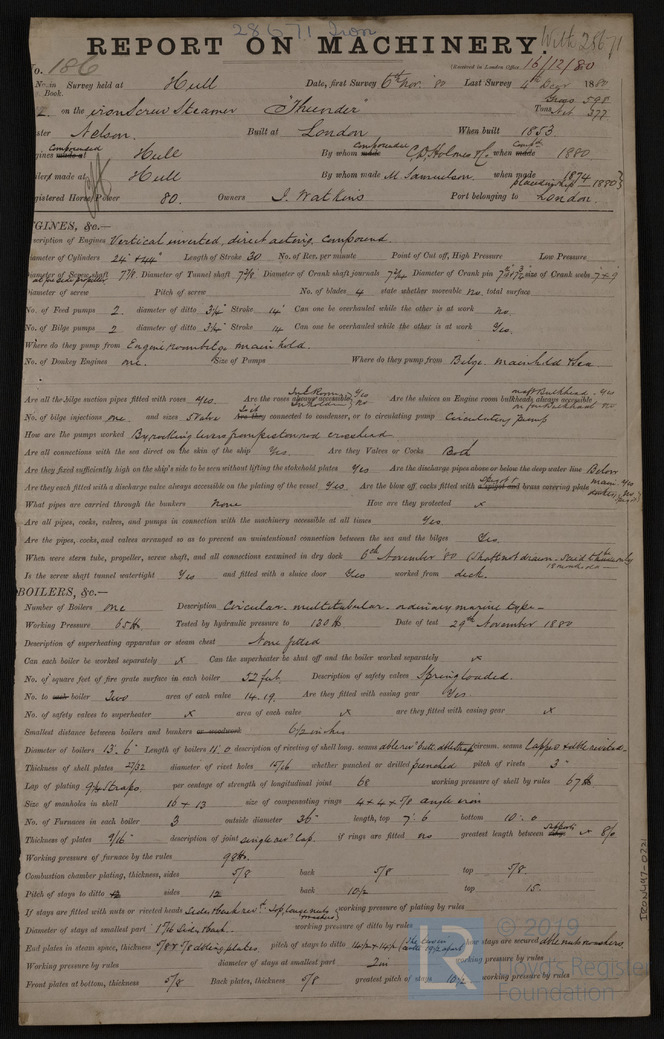 28671 Iron
REPORT ON MACHINERY.
With 28671
No. 186
(Received in London Office 16/12/80
No. in Survey held at Hull Date, first Survey 6th Nov. 80 Last Survey 4th Decr 1880
Book.
on the iron Screw Steamer "Thunder" Tons Gross 598 Net 377
Master Nelson. Built at London When built 1853
Engines made at compounded Hull By whom made compounded C.D. Holmes & Co. when made Comp'd 1880
Boilers made at Hull By whom made M. Samuelson. when made 1874 placed in ship 1880
Registered Horse Power 80. Owners J. Watkins Port belonging to London.
ENGINES, &c.—
Description of Engines Vertical inverted, direct acting, compound
Diameter of Cylinders 24" & 44" Length of Stroke 30 No. of Rev. per minute Point of Cut off, High Pressure Low Pressure
Diameter of Screw shaft 7 7/8 Diameter of Tunnel shaft Diameter of Crank shaft journals 7 3/4 Diameter of Crank pin size of Crank webs
Diameter of screw Pitch of screw No. of blades 4 state whether moveable no. total surface
No. of Feed pumps 2. diameter of ditto 3 1/4" Stroke 14" Can one be overhauled while the other is at work no.
No. of Bilge pumps 2 diameter of ditto 3 1/4" Stroke 14 Can one be overhauled while the other is at work Yes.
Where do they pump from Engine room bilge main hold.
No. of Donkey Engines one. Size of Pumps Where do they pump from Bilge. main hold & sea
Are all the bilge suction pipes fitted with roses yes. Are the roses always accessible Are the sluices on Engine room bulkheads always accessible
No. of bilge injections one and sizes connected to condenser, or to circulating pump Circulating pump
How are the pumps worked By rocking levers from piston rod crosshead
Are all connections with the sea direct on the skin of the ship Yes. Are they Valves or Cocks Both
Are they fixed sufficiently high on the ship's side to be seen without lifting the stokehold plates Yes Are the discharge pipes above or below the deep water line Below
Are they each fitted with a discharge valve always accessible on the plating of the vessel Yes Are the blow off cocks fitted with a spigot and brass covering plate main. yes donkey, no
What pipes are carried through the bunkers None How are they protected x
Are all pipes, cocks, valves, and pumps in connection with the machinery accessible at all times Yes
Are the pipes, cocks, and valves arranged so as to prevent an unintentional connection between the sea and the bilges Yes.
When were stern tube, propeller, screw shaft, and all connections examined in dry dock 6th November '80 (Shaft not drawn. Said to have only 18 months
Is the screw shaft tunnel watertight Yes and fitted with a sluice door Yes worked from deck.
BOILERS, &c.—
Number of Boilers one Description Circular. multitubular. ordinary marine type—
Working Pressure 65 lb Tested by hydraulic pressure to 130 lb Date of test 29th November 1880
Description of superheating apparatus or steam chest None fitted
Can each boiler be worked separately x Can the superheater be shut off and the boiler worked separately x
No. of square feet of fire grate surface in each boiler 52 feet. Description of safety valves Spring loaded.
No. to each boiler Two area of each valve 14.19. Are they fitted with easing gear Yes.
No. of safety valves to superheater x area of each valve x are they fitted with easing gear x
Smallest distance between boilers and bunkers or woodwork 6 1/2 inches
Diameter of boilers 13'. 6" Length of boilers description of riveting of shell long. seams dble rev butt. dble strap circum. seams lapped & dble riveted
Thickness of shell plates 27/32 diameter of rivet holes 15/16 whether punched or drilled punched pitch of rivets 3"
Lap of plating 9 1/2 straps. per centage of strength of longitudinal joint 68 working pressure of shell by rules 67 lb
Size of manholes in shell 16 x 13 size of compensating rings 4 x 4 x 7/8 angle iron
No. of Furnaces in each boiler 3 outside diameter 36" length, top 7'. 6 bottom 10'. 0
Thickness of plates 9/16" description of joint single rev'd lap. if rings are fitted no greatest length between rings
Working pressure of furnace by the rules 98 lb.
Combustion chamber plating, thickness, sides 5/8 back 5/8 top 5/8.
Pitch of stays to ditto sides 12 back 10 1/2 top 15.
If stays are fitted with nuts or riveted heads Sides & back rev'd. top large nuts & washers working pressure of plating by rules
Diameter of stays at smallest part 1 7/16 Sides & back. working pressure of ditto by rules
End plates in steam space, thickness 5/8 & 7/8 dbling plates. pitch of stays to ditto how stays are secured dble nuts & washers
Working pressure by rules diameter of stays at smallest part 2 in working pressure by rules
Front plates at bottom, thickness 5/8 Back plates, thickness 5/8 greatest pitch of stays 10 1/2 working pressure by rules
IRON497-0221
© 2019
LR
Lloyd's Register
Foundation